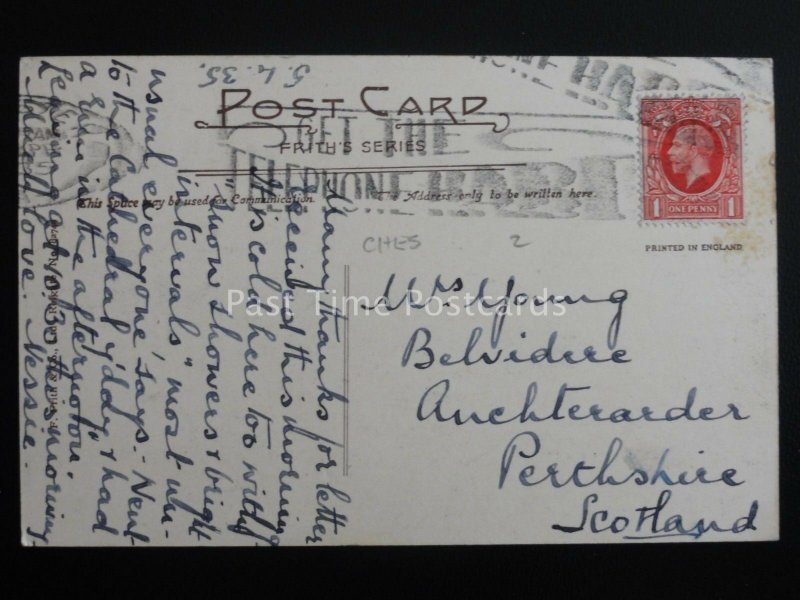 5.4.35.
POST CARD
FRITH'S SERIES
GET THE
TELEPHONE HABIT
This Space may be used for Communication.
The Address only to be written here.
1 ONE PENNY 1
PRINTED IN ENGLAND
CHES 2
Many thanks for letter
received this morning
It is cold here too with
"snow showers & bright
intervals" most un-
usual everyone says. - Went
to the Cathedral y'day & had
a run in the afternoon.
Leaving at 10.30 this morning
Much love. Nessie.
Mrs Young
Belvidere
Auchterarder
Perthshire
Scotland
Past Time Postcards